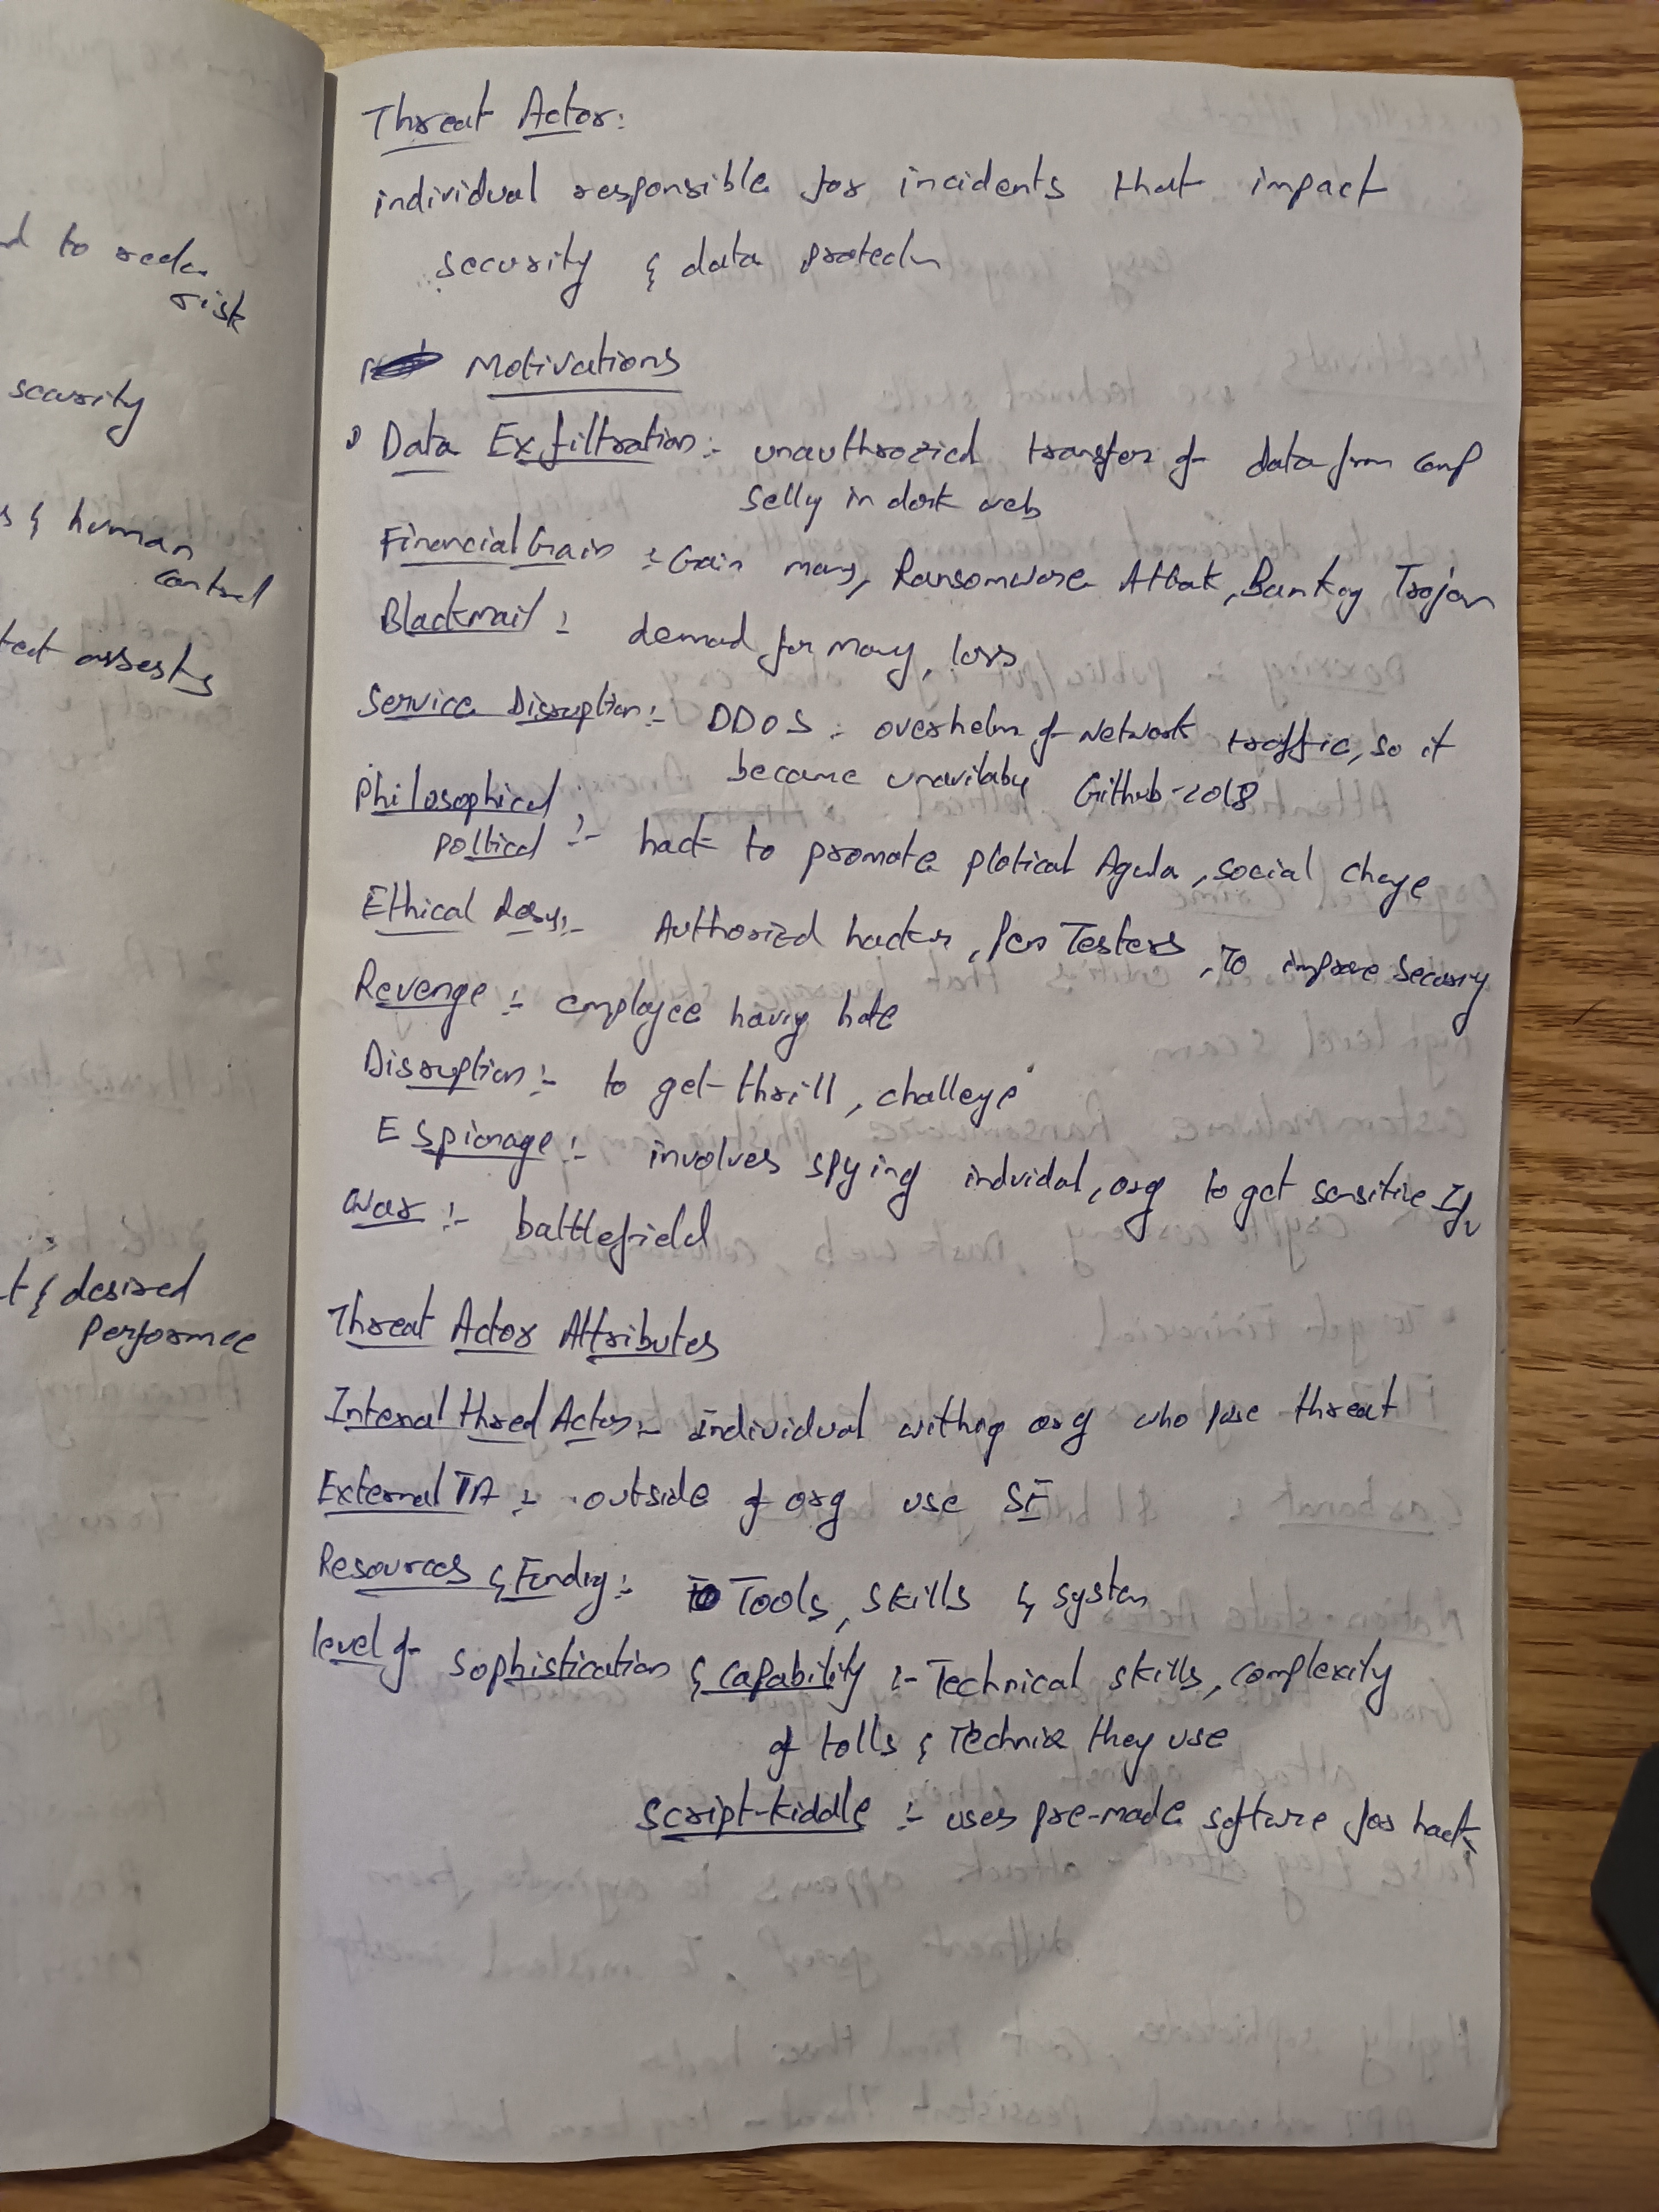 Threat Actor:
individual responsible for incidents that impact
security & data protectn
Motivations
Data Exfiltration :- unauthrozied transfer of data from comp
selly in dark web
Financial Gain :- Gain many, Ransomware Attak, Bankoy Trojan
Blackmail :- demad for money, loss
Service Disruption :- DDOS : overhelm of Network traffic, so it
became unavilaby Github-2018
Philosophical,
poltical :- hack to promote plotical Agula, social chage
Ethical :- Authorized hackers, Pen Testers, To improve security
Revenge :- employee havig hate
Disruption :- to get thrill, challeye
Espionage :- involves spying indvidal, org to get sensitive
War :- battlefield
Threat Actor Attributes
Internal thred Actor :- individual withng org who pose threat
External TA :- outside of org use SE
Resources & Fundig :- Tools, skills & system
level of sophistication & capability :- Technical skills, complexity
of tolls & Technix they use
Script-kiddle :- uses pre-made softwre for hack
to
risk
security
& human
control
assests
& desired
performce